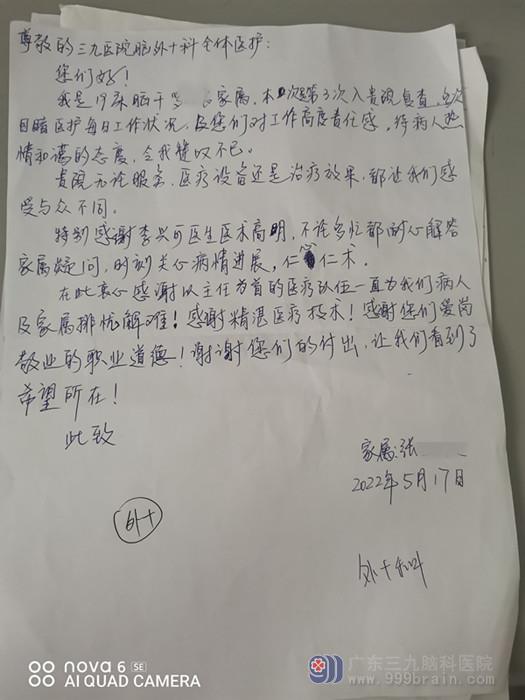 尊敬的三九医院脑外十科全体医护:
您们好!
我是19床脑干 家属,本次是第3次入贵院复查,每次
目睹医护每日工作状况,及您们对工作高度责任感,待病人热
情和蔼的态度,令我赞叹不已。
贵院无论服务、医疗设备还是治疗效果,都让我们感
受与众不同。
特别感谢李兴可医生医术高明,不论多忙都耐心解答
家属疑问,时刻关心病情进展,仁 仁术。
在此衷心感谢以主任为首的医疗队伍一直为我们病人
及家属排忧解难!感谢精湛医疗技术!感谢您们爱岗
敬业的职业道德!谢谢您们的付出,让我们看到了
希望所在!
此致
家属:张
2022年5月17日
外十
外十科
nova 6 SE
AI QUAD CAMERA
广东三九脑科医院
www.999brain.com